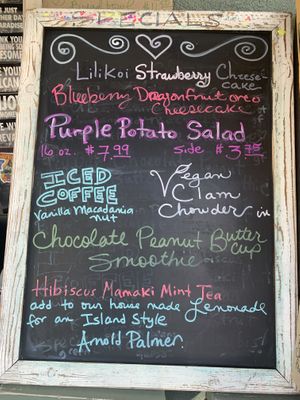 SPECIALS
Lilikoi Strawberry Cheese-
cake
Blueberry Dragonfruit oreo
Cheesecake
Purple Potato Salad
16 oz. $7.99 side $3.75
ICED
COFFEE
Vanilla Macadamia
nut
Vegan
Clam
Chowder
Chocolate Peanut Butter
cup
Smoothie
Hibiscus Mamaki Mint Tea
add to our house made Lemonade
for an Island Style
Arnold Palmer